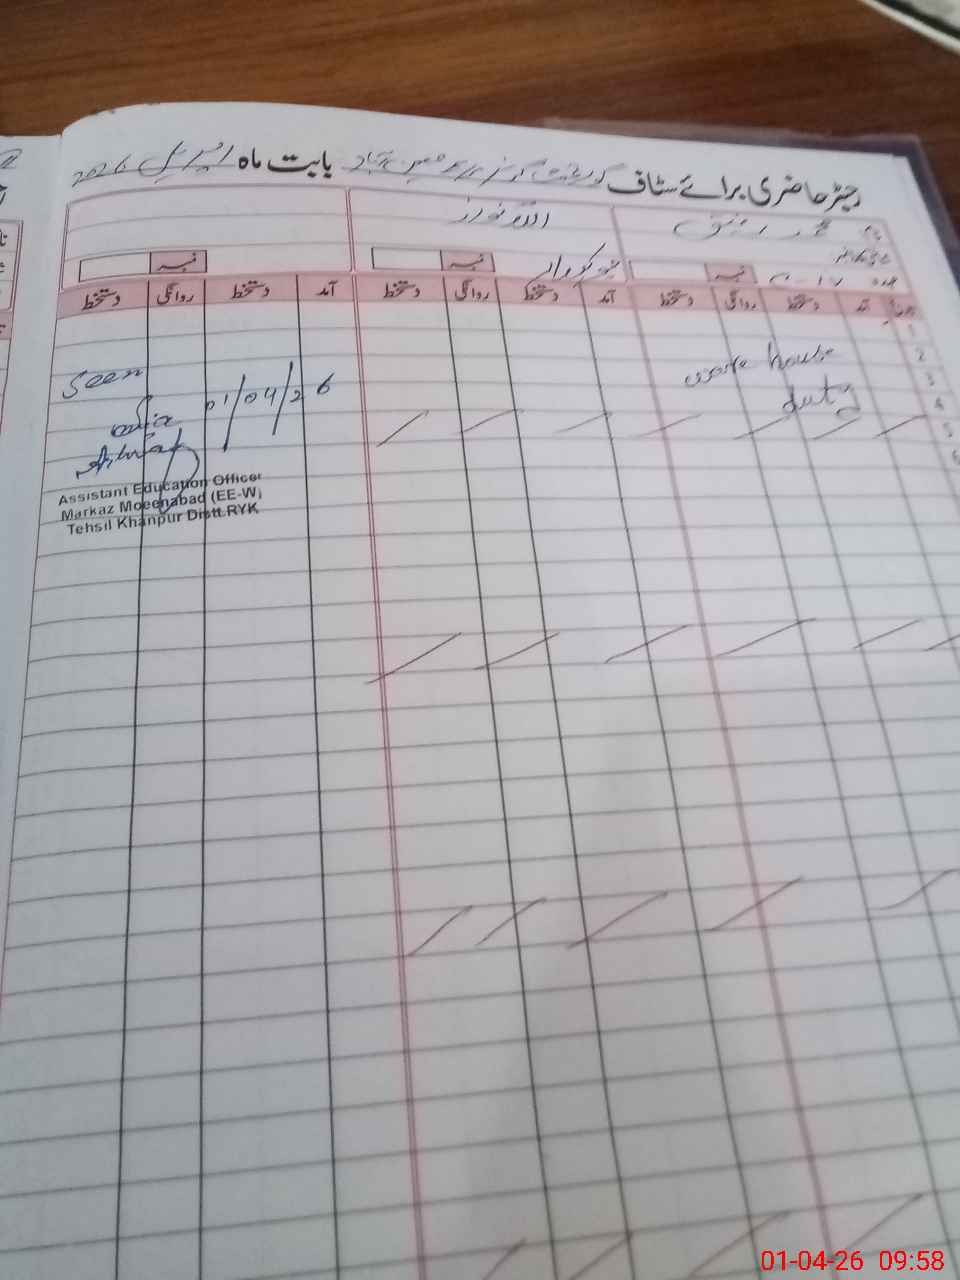 رجسٹر حاضری برائے سٹاف گورنمنٹ گرلز بابت ماہ اپریل 2026
نام محمد رفیق
اللہ نواز
عہدہ
چوکیدار
نمبر
نمبر
نمبر
آمد دستخط روانگی دستخط آمد دستخط روانگی دستخط آمد دستخط روانگی دستخط
1
2
3
4
5
6
ware house
duty
Seen
01/04/26
Assistant Education Officer
Markaz Moeenabad (EE-W)
Tehsil Khanpur Distt.RYK
01-04-26 09:58